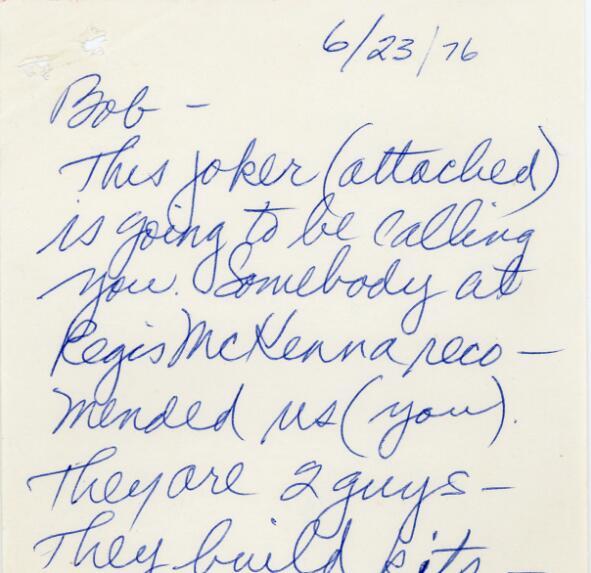 6/23/76
Bob -
This joker (attached)
is going to be calling
you. Somebody at
Regis McKenna reco -
mended us (you).
They are 2 guys -
They build kits -